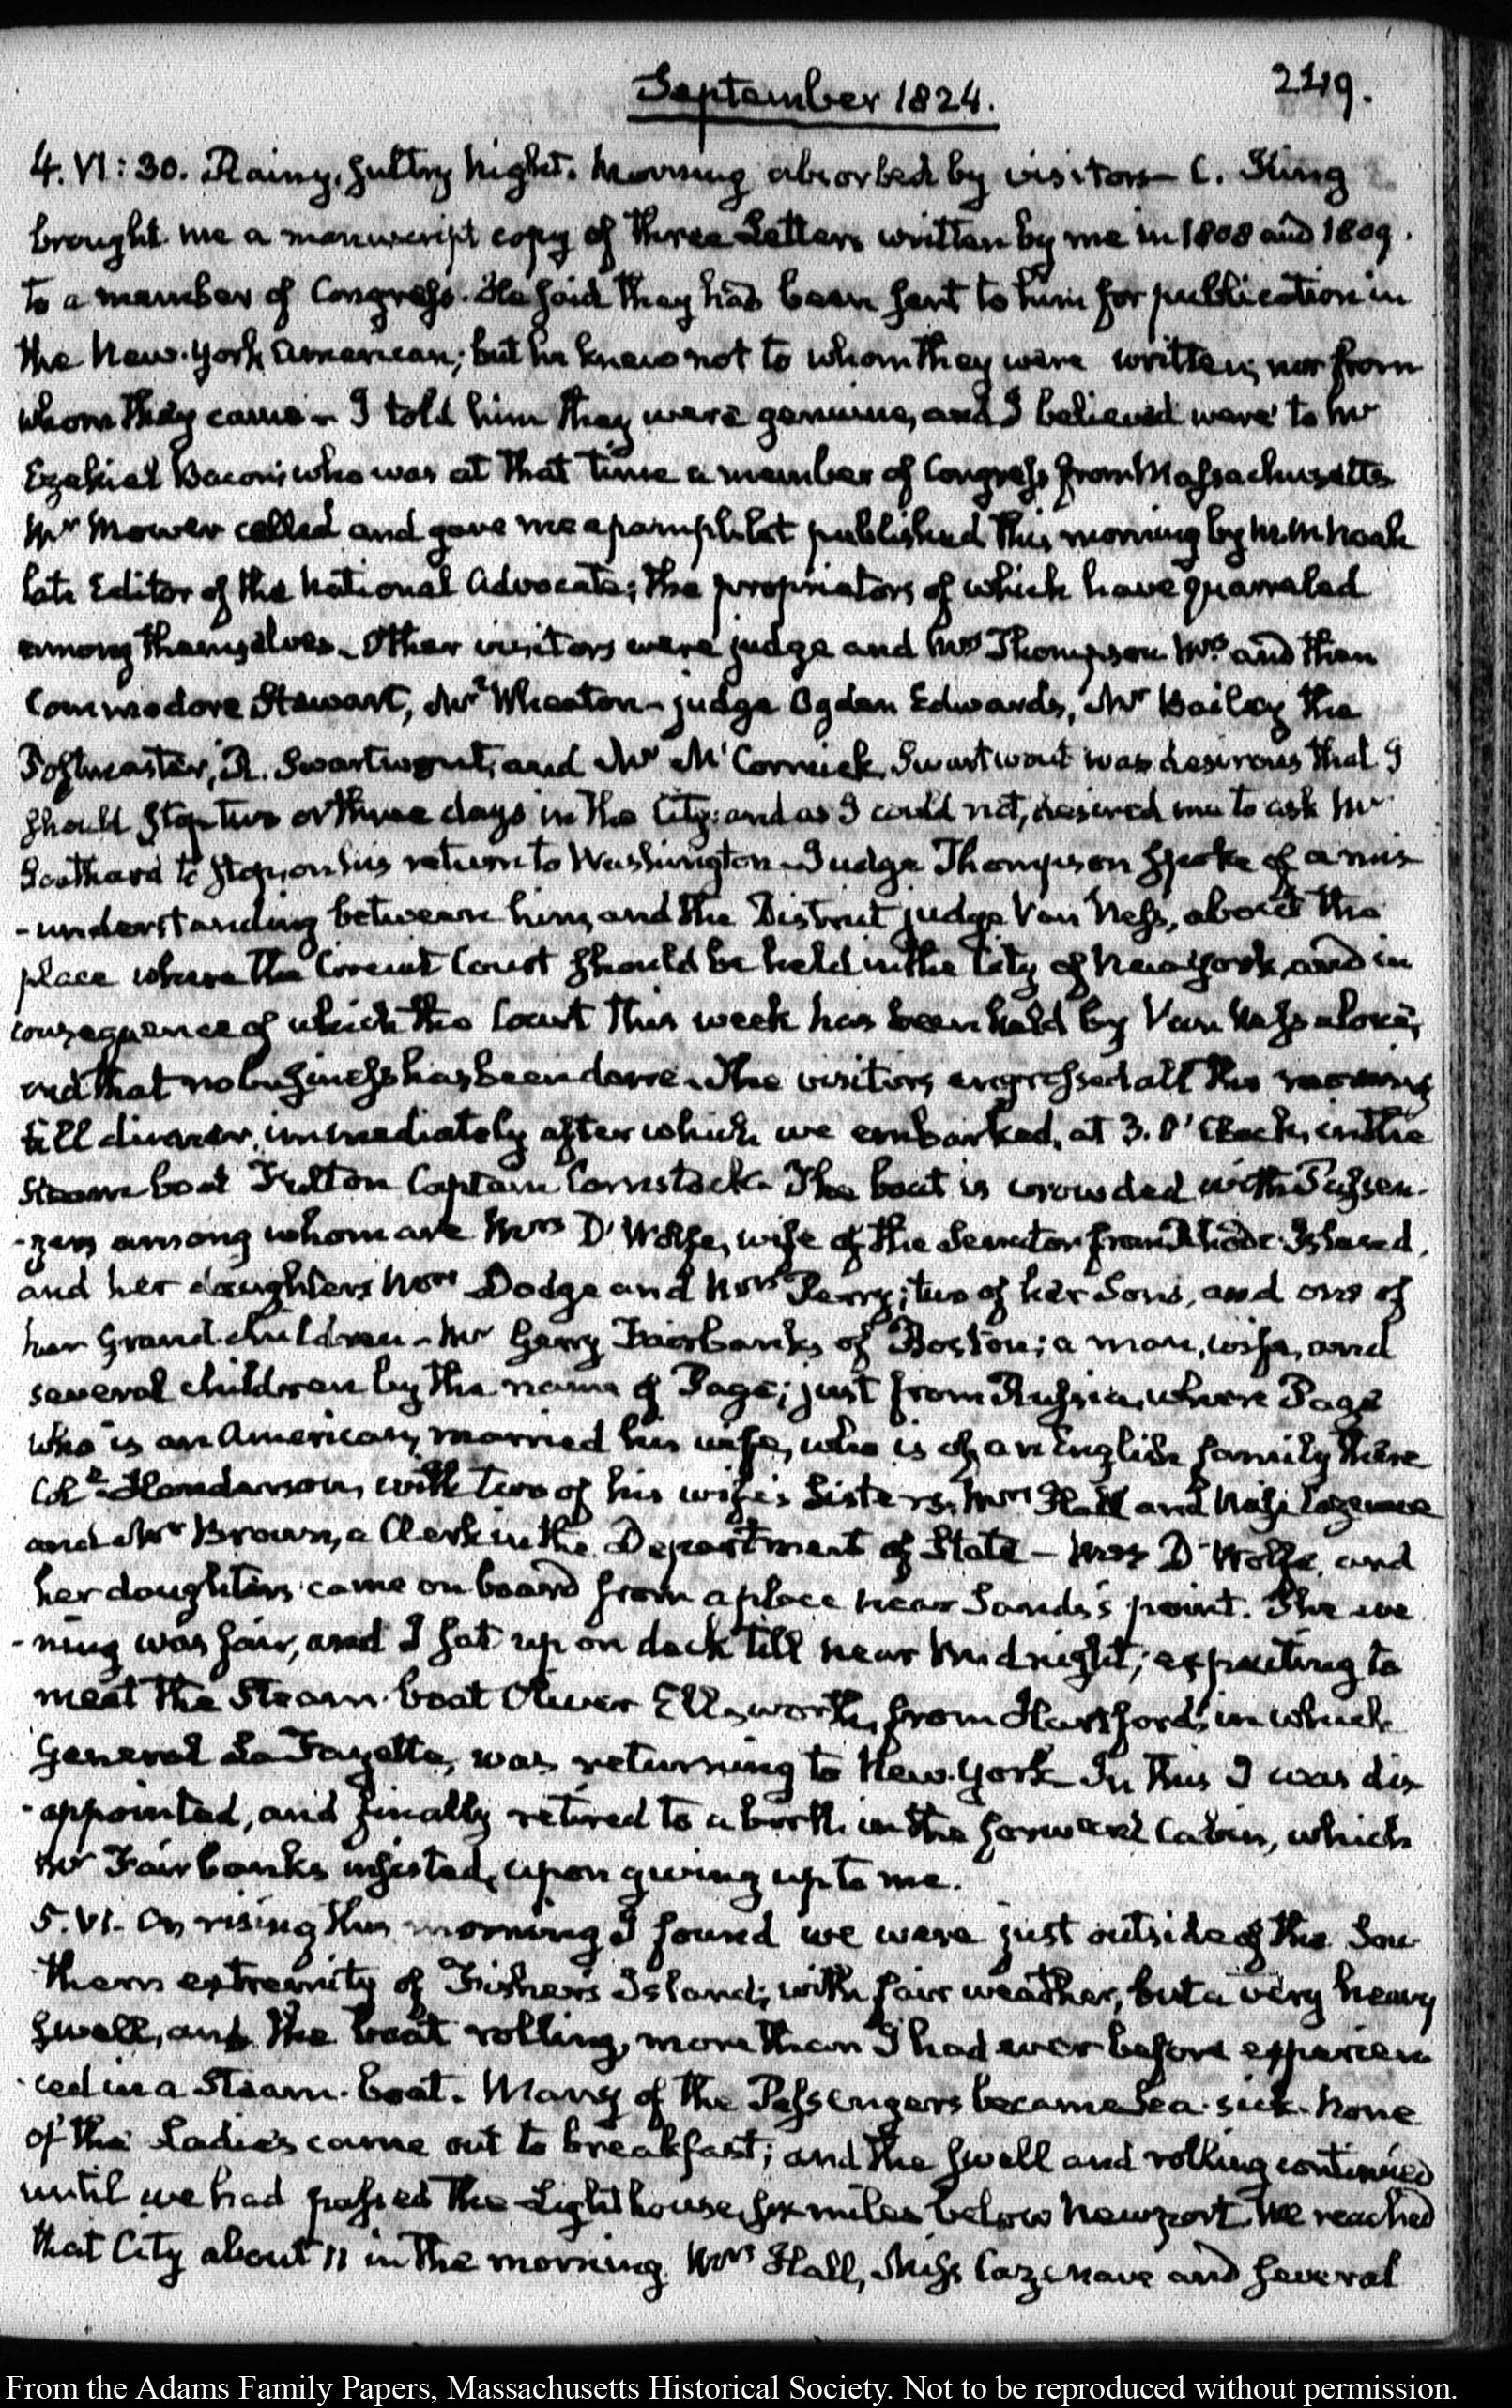 September 1824.
219.
4. VI: 30. Rainy, sultry Night. Morning absorbed by visitors — C. King
brought me a manuscript copy of three Letters written by me in 1808 and 1809.
to a member of Congress. He said they had been sent to him for publication in
the New-York American; but he knew not to whom they were written, nor from
whom they came — I told him they were genuine, and I believed were to Mr
Ezekiel Bacon, who was at that time a member of Congress from Massachusetts
Mr Mower called and gave me a pamphlet published this morning by M. M. Noah
late Editor of the National Advocate; the proprietors of which have quarreled
among themselves. Other visitors were judge and Mrs Thompson Mrs and then
Commodore Stewart, Mr Wheaton — judge Ogden Edwards, Mr Bailey the
Postmaster, R. Swartwout, and Mr McCormick. Swartwout was desirous that I
should stop two or three days in the City; and as I could not, desired me to ask Mr
Southard to stop, on his return to Washington — Judge Thompson spoke of a mis-
-understanding between him, and the District judge Van Ness, about the
place where the Circuit Court should be held in the City of New York, and in
consequence of which the Court this week has been held by Van Ness alone,
and that no business has been done. The visitors engrossed all the morning
till dinner, immediately after which we embarked, at 3. O'Clock, in the
Steam boat Fulton Captain Comstock. The boat is crowded with Passen-
-gers among whom are Mrs D'Wolfe, wife of the Senator from Rhode-Island,
and her daughters Mrs Dodge and Mrs Perry; two of her Sons, and one of
her Grand-children — Mr Gerry Fairbanks of Boston; a man, wife, and
several children by the name of Page; just from Russia, where Page
who is an American, married his wife, who is of an English family there
Coll. Henderson, with two of his wife's Sisters, Mrs Hall and Miss Cazenave
and Mr Brown, a Clerk in the Department of State — Mrs D'Wolfe, and
her daughters came on board from a place near Sands's point. The eve
-ning was fair, and I sat up on deck till near Midnight; expecting to
meet the Steam-boat Oliver Ellsworth, from Hartford, in which
General La Fayette, was returning to New-York. In this I was dis
-appointed, and finally retired to a birth in the forward Cabin, which
Mr Fairbanks insisted, upon giving up to me.
5. VI. On rising this morning I found we were just outside of the Sou
thern extremity of Fisher's Island; with fair weather, but a very heavy
swell, and the boat rolling, more than I had ever before experien
-ced in a Steam-boat. Many of the Passengers became Sea-sick. None
of the Ladies came out to breakfast; and the swell and rolling continued
until we had passed the Light house, six miles below Newport. We reached
that City about 11 in the morning Mrs Hall, Miss Cazenave and several
From the Adams Family Papers, Massachusetts Historical Society. Not to be reproduced without permission.